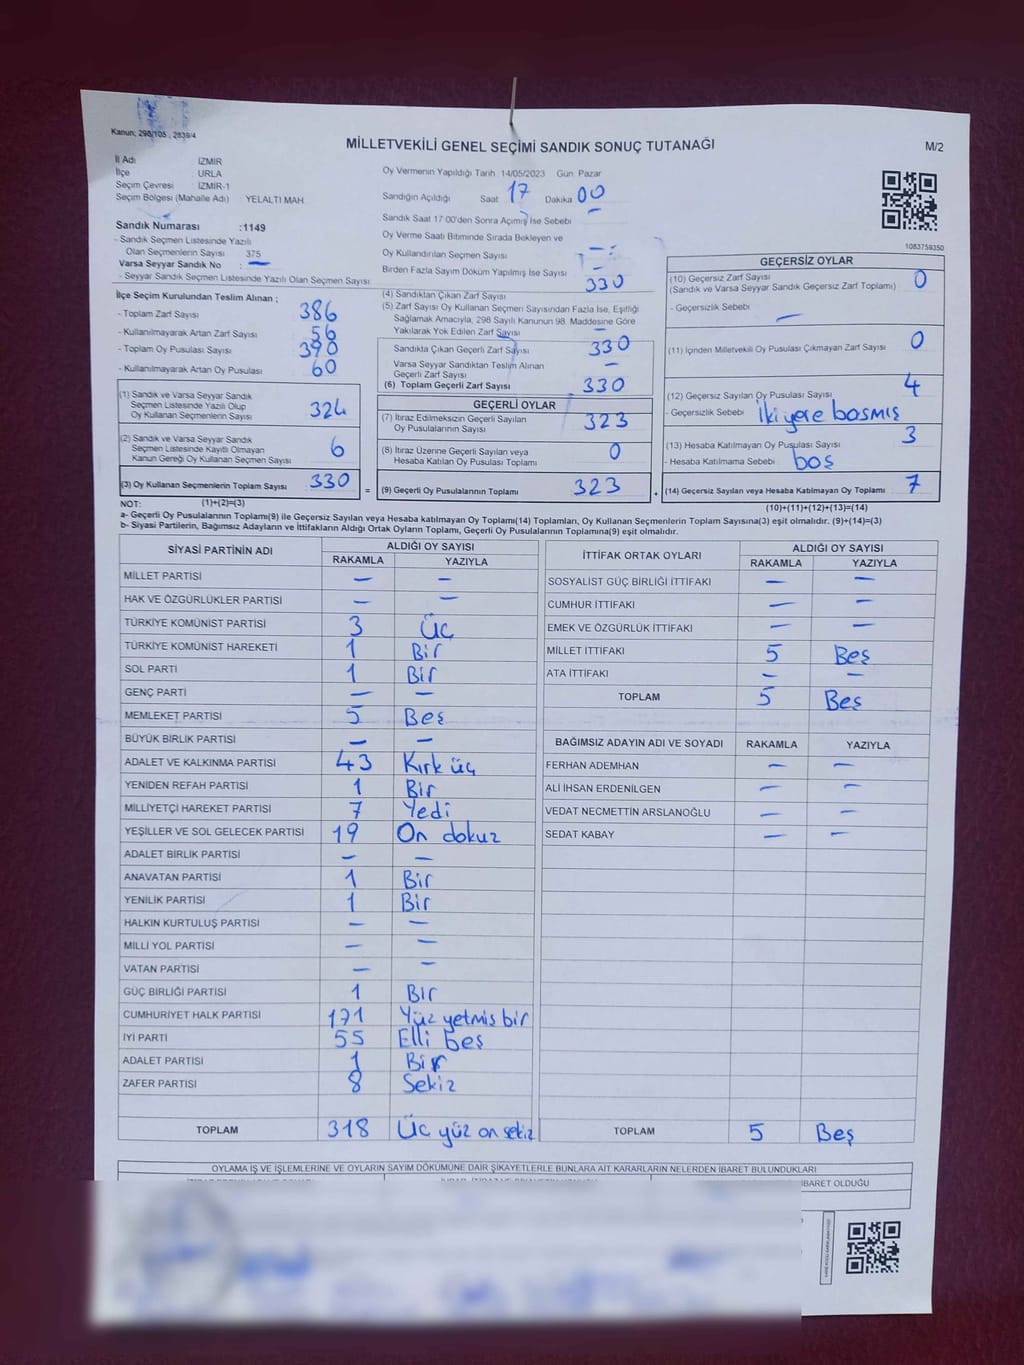 Kanun; 298/105 , 2839/4
MİLLETVEKİLİ GENEL SEÇİMİ SANDIK SONUÇ TUTANAĞI
M/2
İl Adı : İZMİR
İlçe : URLA
Seçim Çevresi : İZMİR-1
Seçim Bölgesi (Mahalle Adı) YELALTI MAH.
Oy Vermenin Yapıldığı Tarih 14/05/2023 Gün: Pazar
Sandığın Açıldığı Saat 17 Dakika 00
Sandık Saat 17:00'den Sonra Açılmış İse Sebebi —
Oy Verme Saati Bitiminde Sırada Bekleyen ve
Oy Kullandırılan Seçmen Sayısı —
Birden Fazla Sayım Döküm Yapılmış İse Sayısı —
1083759350
Sandık Numarası :1149
- Sandık Seçmen Listesinde Yazılı
Olan Seçmenlerin Sayısı 375
Varsa Seyyar Sandık No : —
- Seyyar Sandık Seçmen Listesinde Yazılı Olan Seçmen Sayısı
İlçe Seçim Kurulundan Teslim Alınan ;
- Toplam Zarf Sayısı 386
- Kullanılmayarak Artan Zarf Sayısı 56
- Toplam Oy Pusulası Sayısı 390
- Kullanılmayarak Artan Oy Pusulası 60
(1) Sandık ve Varsa Seyyar Sandık
Seçmen Listesinde Yazılı Olup
Oy Kullanan Seçmenlerin Sayısı 324
(2) Sandık ve Varsa Seyyar Sandık
Seçmen Listesinde Kayıtlı Olmayan
Kanun Gereği Oy Kullanan Seçmen Sayısı 6
(3) Oy Kullanan Seçmenlerin Toplam Sayısı 330 =
(1)+(2)=(3)
(4) Sandıktan Çıkan Zarf Sayısı 330
(5) Zarf Sayısı Oy Kullanan Seçmen Sayısından Fazla İse, Eşitliği
Sağlamak Amacıyla, 298 Sayılı Kanunun 98. Maddesine Göre
Yakılarak Yok Edilen Zarf Sayısı —
Sandıkta Çıkan Geçerli Zarf Sayısı 330
Varsa Seyyar Sandıktan Teslim Alınan
Geçerli Zarf Sayısı —
(6) Toplam Geçerli Zarf Sayısı 330
GEÇERLİ OYLAR
(7) İtiraz Edilmeksizin Geçerli Sayılan
Oy Pusulalarının Sayısı 323
(8) İtiraz Üzerine Geçerli Sayılan veya
Hesaba Katılan Oy Pusulası Toplamı 0
(9) Geçerli Oy Pusulalarının Toplamı 323 +
GEÇERSİZ OYLAR
(10) Geçersiz Zarf Sayısı 0
(Sandık ve Varsa Seyyar Sandık Geçersiz Zarf Toplamı)
- Geçersizlik Sebebi
—
(11) İçinden Milletvekili Oy Pusulası Çıkmayan Zarf Sayısı 0
(12) Geçersiz Sayılan Oy Pusulası Sayısı 4
- Geçersizlik Sebebi İki yere basmış
(13) Hesaba Katılmayan Oy Pusulası Sayısı 3
- Hesaba Katılmama Sebebi boş
(14) Geçersiz Sayılan veya Hesaba Katılmayan Oy Toplamı 7
(10)+(11)+(12)+(13)=(14)
NOT:
a- Geçerli Oy Pusulalarının Toplamı(9) ile Geçersiz Sayılan veya Hesaba katılmayan Oy Toplamı(14) Toplamları, Oy Kullanan Seçmenlerin Toplam Sayısına(3) eşit olmalıdır. (9)+(14)=(3)
b- Siyasi Partilerin, Bağımsız Adayların ve İttifakların Aldığı Ortak Oyların Toplamı, Geçerli Oy Pusulalarının Toplamına(9) eşit olmalıdır.
SİYASİ PARTİNİN ADI ALDIĞI OY SAYISI
RAKAMLA YAZIYLA
MİLLET PARTİSİ — —
HAK VE ÖZGÜRLÜKLER PARTİSİ — —
TÜRKİYE KOMÜNİST PARTİSİ 3 Üç
TÜRKİYE KOMÜNİST HAREKETİ 1 Bir
SOL PARTİ 1 Bir
GENÇ PARTİ — —
MEMLEKET PARTİSİ 5 Beş
BÜYÜK BİRLİK PARTİSİ — —
ADALET VE KALKINMA PARTİSİ 43 Kırk üç
YENİDEN REFAH PARTİSİ 1 Bir
MİLLİYETÇİ HAREKET PARTİSİ 7 Yedi
YEŞİLLER VE SOL GELECEK PARTİSİ 19 On dokuz
ADALET BİRLİK PARTİSİ — —
ANAVATAN PARTİSİ 1 Bir
YENİLİK PARTİSİ 1 Bir
HALKIN KURTULUŞ PARTİSİ — —
MİLLİ YOL PARTİSİ — —
VATAN PARTİSİ — —
GÜÇ BİRLİĞİ PARTİSİ 1 Bir
CUMHURİYET HALK PARTİSİ 171 Yüz yetmiş bir
İYİ PARTİ 55 Elli beş
ADALET PARTİSİ 1 Bir
ZAFER PARTİSİ 8 Sekiz
TOPLAM 318 Üç yüz on sekiz
İTTİFAK ORTAK OYLARI ALDIĞI OY SAYISI
RAKAMLA YAZIYLA
SOSYALİST GÜÇ BİRLİĞİ İTTİFAKI — —
CUMHUR İTTİFAKI — —
EMEK VE ÖZGÜRLÜK İTTİFAKI — —
MİLLET İTTİFAKI 5 Beş
ATA İTTİFAKI — —
TOPLAM 5 Beş
BAĞIMSIZ ADAYIN ADI VE SOYADI RAKAMLA YAZIYLA
FERHAN ADEMHAN — —
ALİ İHSAN ERDENİLGEN — —
VEDAT NECMETTİN ARSLANOĞLU — —
SEDAT KABAY — —
TOPLAM 5 Beş
OYLAMA İŞ VE İŞLEMLERİNE VE OYLARIN SAYIM DÖKÜMÜNE DAİR ŞİKAYETLERLE BUNLARA AİT KARARLARIN NELERDEN İBARET BULUNDUKLARI
İBARET OLDUĞU